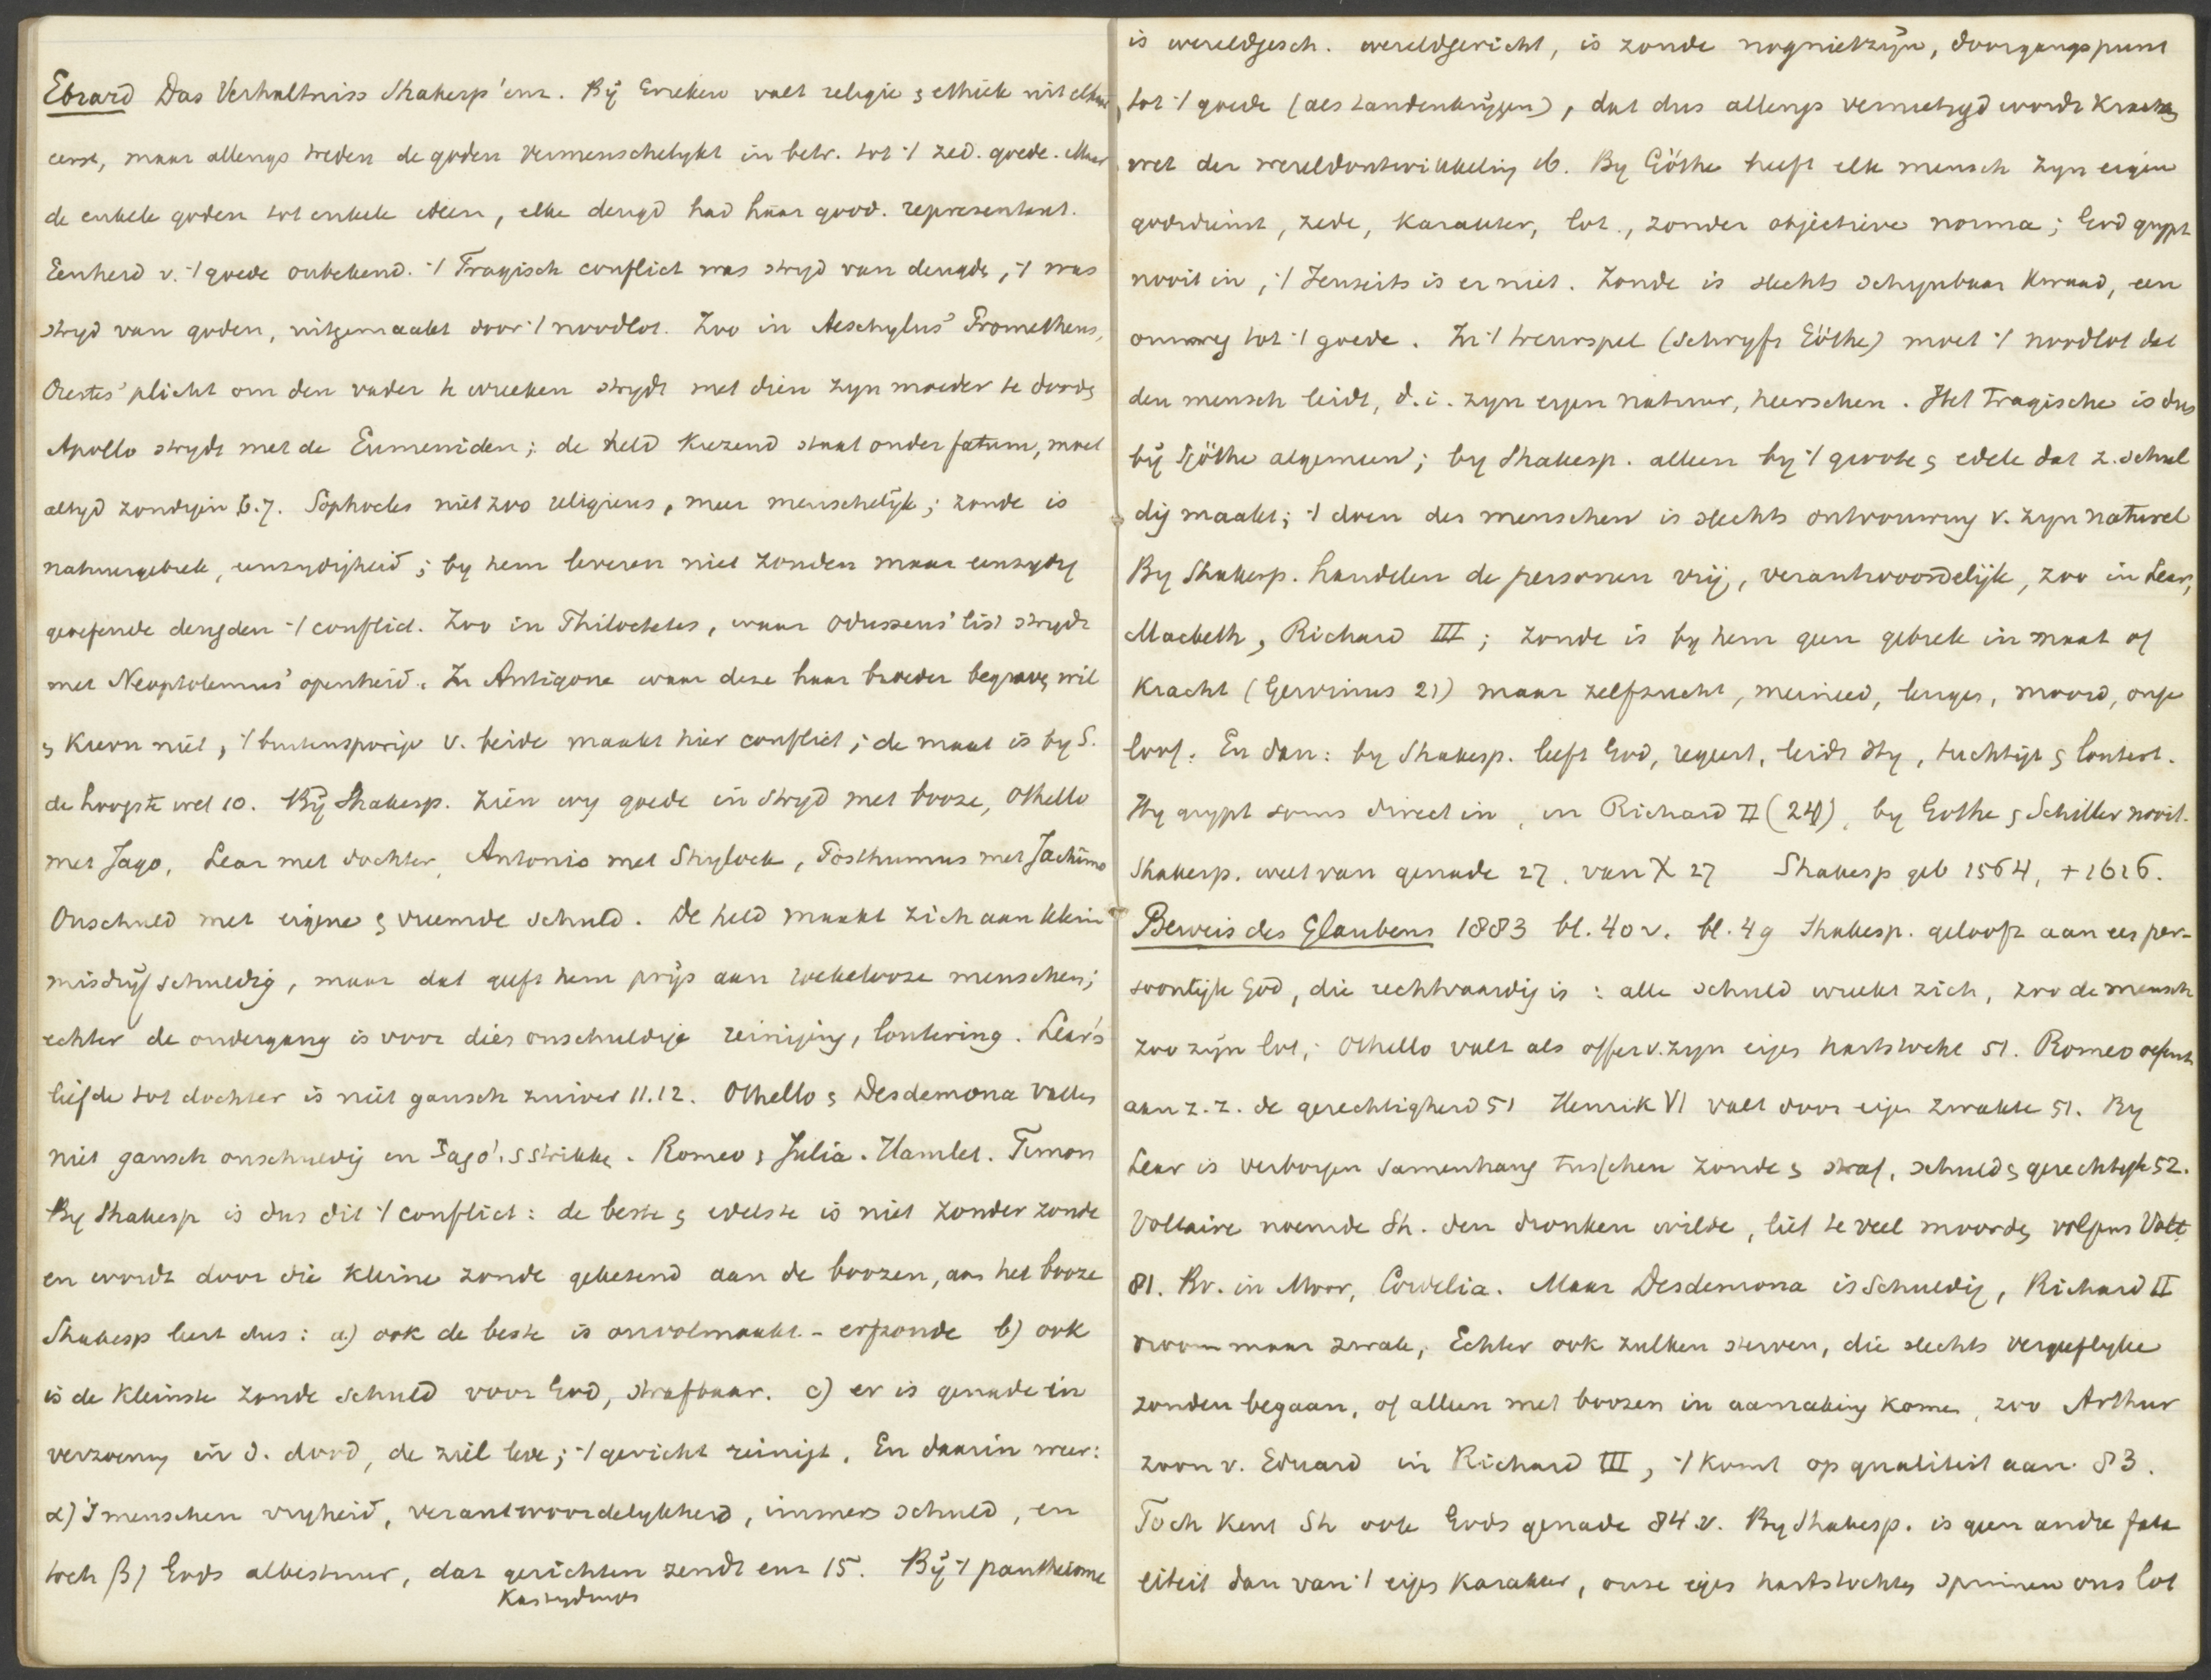 Ebrard Das Verhaltniss Shakesp' enz. By Grieken valt religie & ethiek uit elkaar
eerst, maar allengs treden de goden vermenschelykt in betr. tot 't zed. goede. Maar
de enkele goden tot enkele ideen, elke deugd had haar godd. representant.
Eenheid v. 't goede onbekend. 't Tragisch conflict was stryd van deugde, 't was
stryd van goden, uitgemaakt door 't noodlot. Zoo in Aeschylus' Prometheus,
Orestes' plicht om den vader te wreeken strydt met dien zyn moeder te doode
Apollo strydt met de Eumeniden; de held kiezend staat onder fatum, moet
altyd zondigen 6.7. Sophocles niet zoo religieus, meer menschelijk; zonde is
natuurgebrek, eenzydigheid; by hem leveren niet zonden maar eenzydig
geoefende deugden 't conflict. Zoo in Philoctetes, waar Odusseus' list strydt
met Neoptolemus' openheid. In Antigone waar deze haar broeder begrave wil
& Kreon niet, 't buitensporige v. beide maakt hier conflict; de maat is by S.
de hoogste wet 10. By Shakesp. zien wy goede in stryd met booze, Othello
met Jago, Lear met dochter, Antonio met Shylock, Posthumus met Jachimo
Onschuld met eigene & vreemde schuld. De held maakt zich aan klein
misdryf schuldig, maar dat geeft hem prijs aan roekelooze menschen;
echter de ondergang is voor dies onschuldige reiniging, loutering. Lear's
liefde tot dochter is niet gansch zuiver 11.12. Othello & Desdemona valle
niet gansch onschuldig in Jago's strikke. Romeo & Julia. Hamlet. Timon
By Shakesp is dus dit 't conflict: de beste & edelste is niet zonder zonde
en wordt door die kleine zonde geketend aan de boozen, aan het booze
Shakesp leert dus: a) ook de beste is onvolmaakt - erfzonde b) ook
is de kleinste zonde schuld voor God, strafbaar. c) er is genade in
verzoening in d. dood, de ziel leve; 't gericht reinigt. En daarin weer:
α) 's menschen vryheid, verantwoordelykheid, immers schuld, en
toch β) Gods albestuur, dat gerichten zendt enz 15. By 't pantheisme
Kastydings
is wereldgesch. wereldgericht, is zonde nognietzijn, doorgangspunt
tot 't goede (als tandenkrijgen), dat dus allengs vernietigd wordt krachtes
wet der wereldontwikkeling 16. By Göthe heeft elk mensch zyn eigen
godsdienst, zede, karakter, lot., zonder objectieve norma; God grypt
nooit in, 't Jenseits is er niet. Zonde is slechts schynbaar kwaad, een
omweg tot 't goede. In 't treurspel (schryft Göthe) moet 't noodlot dat
den mensch leidt, d.i. zyn eigen natuur, heerschen. Het Tragische is dus
by Göthe algemeen; by Shakesp. alleen by 't groote & edele dat z. schul
dig maakt; 't doen des menschen is slechts ontvouwing v. zyn naturel
By Shakesp. handelen de personen vrij, verantwoordelijk, zoo in Lear,
Macbeth, Richard III; zonde is by hem geen gebrek in maat of
kracht (Gervinus 21) maar zelfzucht, meineed, leugen, moord, onge
loof. En dan: by Shakesp. leeft God, regeert, leidt Hy, tuchtigt & loutert.
Hy grypt soms direct in, in Richard II (24), by Gothe & Schiller nooit.
Shakesp. weet van genade 27. van X 27 Shakesp geb 1564, + 1616.
Beweis des Glaubens 1883 bl. 40 v. bl. 49 Shakesp. gelooft aan een per-
soonlijk God, die rechtvaardig is: alle schuld wreekt zich, zoo de mensch
zoo zijn lot; Othello valt als offer v. zyn eigen hartstocht 51. Romeo
aan z.z. de gerechtigheid 51 Henrik VI valt door eigen zwakte 51. By
Lear is verborgen samenhang tusschen zonde & straf, schuld & gerechtigh 52.
Voltaire noemde Sh. den dronken wilde, liet te veel moorde, volgens Volt.
81. Bv. in Moor, Cordelia. Maar Desdemona is schuldig, Richard II
vroom maar zwak, Echter ook zulken sterven, die slechts vergeeflyke
zonden begaan, of alleen met boozen in aanraking kome, zoo Arthur
zoon v. Eduard in Richard III, 't komt op qualiteit aan 83.
Toch kent Sh ook Gods genade 84 v. By Shakesp. is geen andre fata
liteit dan van 't eigen karakter, onze eigen hartstochte spinnen ons lot